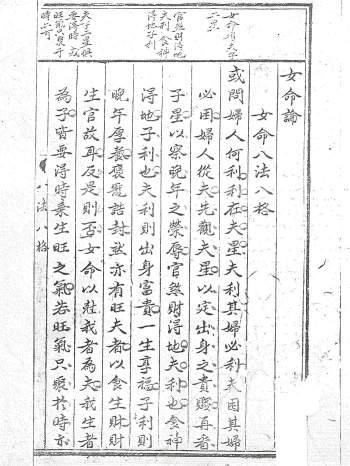 女命論
女命八法八格
女命夫子
二星
或問婦人何利利在夫星夫利其婦必利夫困其婦
必困婦人從夫先觀夫星以定出身之貴賤再看
官煞財得地
夫利食神
得地子利
子星以察晚年之榮辱官煞財得地夫利也食神
得地子利也夫利則出身富貴一生享福子利則
晚年厚養褒寵誥封然亦有旺夫者以食生財財
夫子二星俱
要得時或
旺氣只聚于
時亦可
生官故耳反是則否女命以尅我者為夫我生者
為子皆要得時乘生旺之氣若旺氣只聚於時亦
八法八格